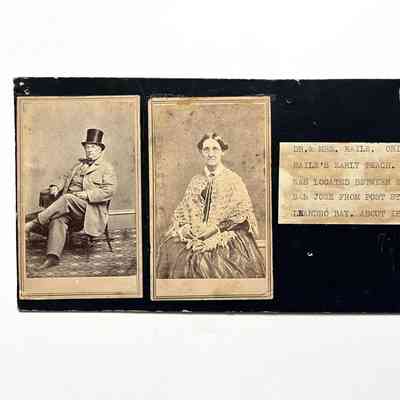 DR.& MRS. HAILE. ORI
HAILE'S EARLY TEACH.
WAS LOCATED BETWEEN
SAN JOSE FROM POST
LEANDRO BAY. ABOUT